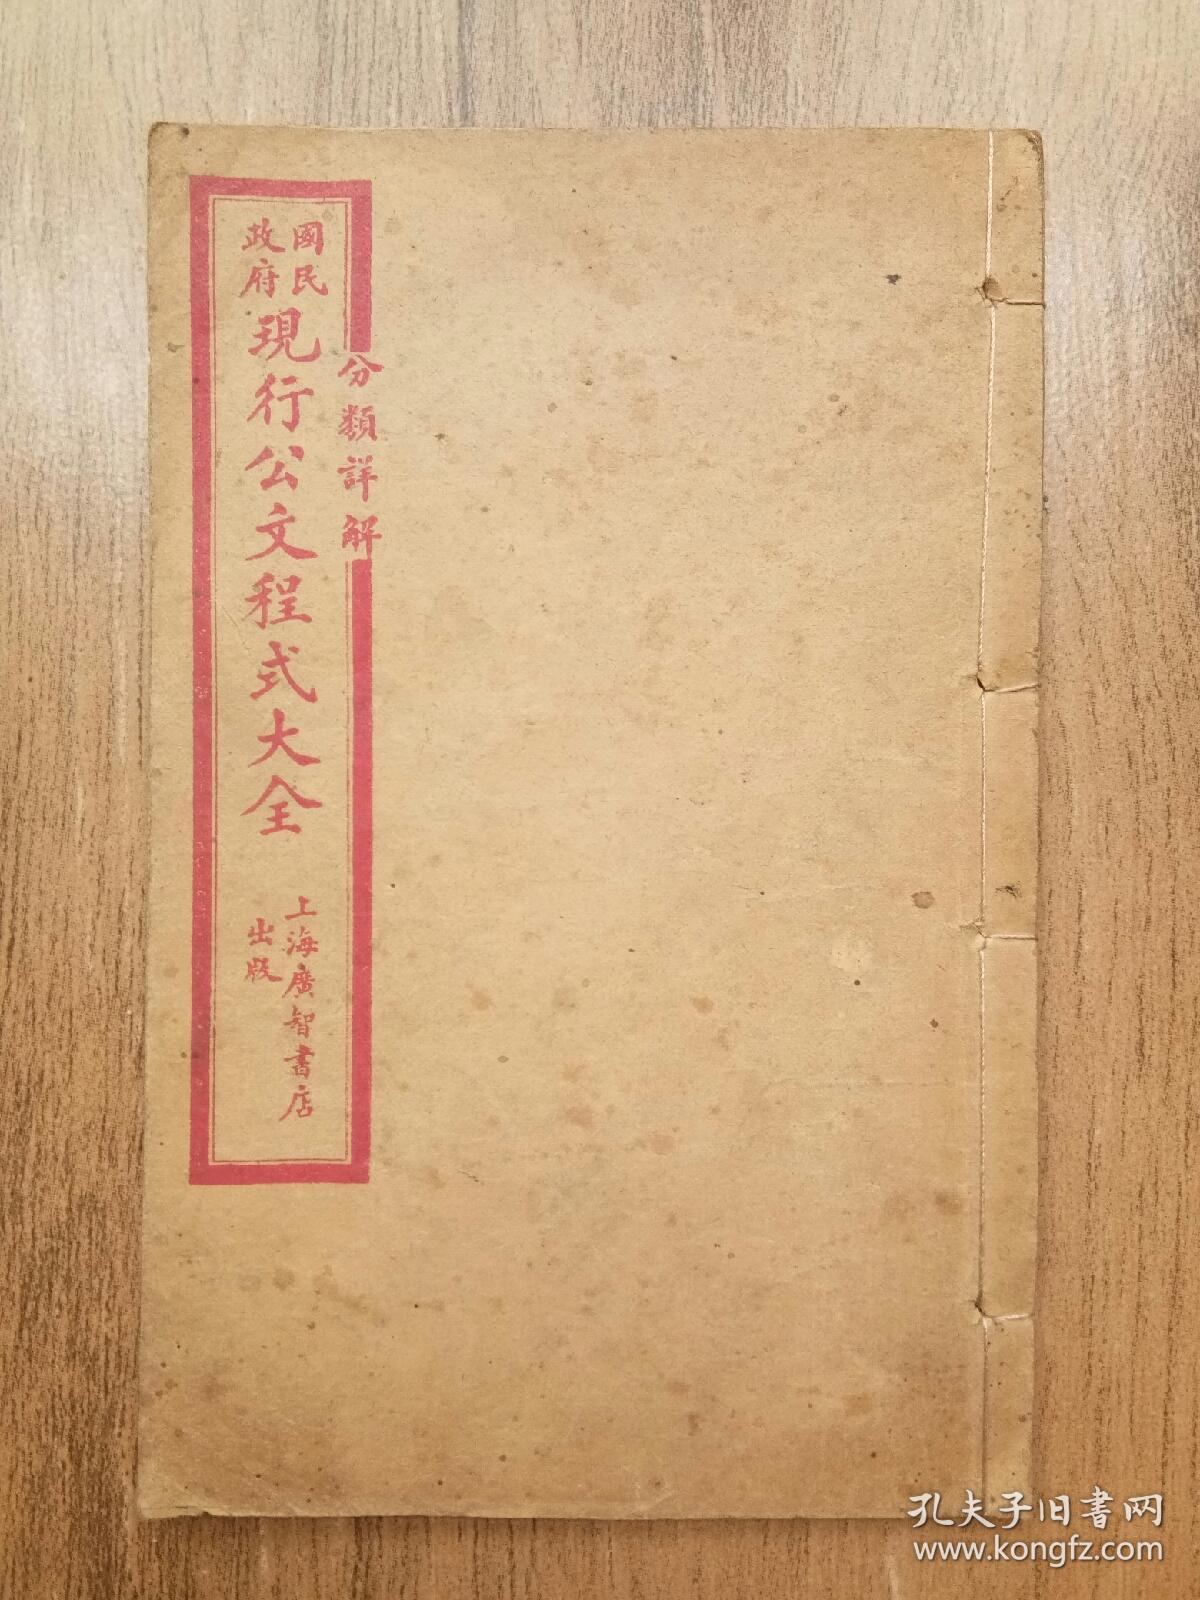 分類詳解
國民
政府
現行公文程式大全
上海廣智書店
出版
孔夫子旧書网
www.kongfz.com